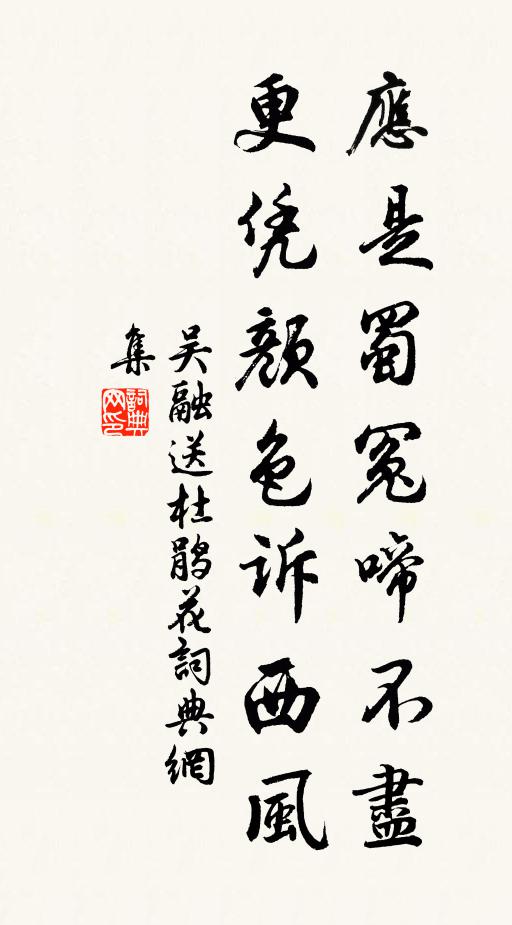 應是蜀冤啼不盡
更凭顏色訴西風
吳融送杜鵑花詞典網
集
詞典
网印